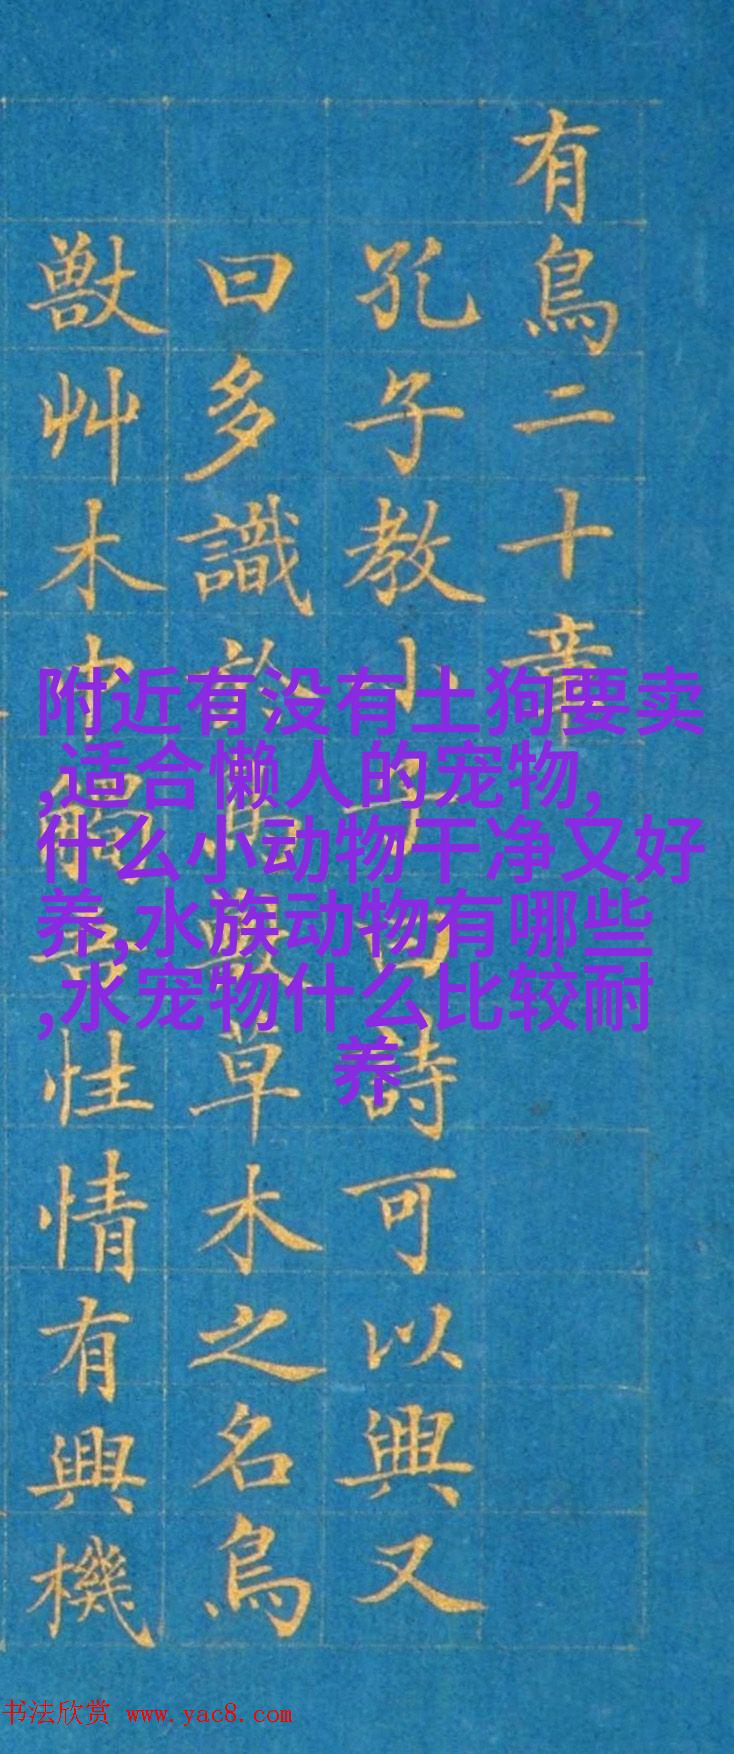 有鳥二十章
孔子教小子曰詩可以興又
曰多識於鳥獸草木之名鳥
獸艸木中性情有興機
附近有没有土狗要卖
,适合懒人的宠物,
什么小动物干净又好
养,水族动物有哪些
,水宠物什么比较耐
养
书法欣赏 www.yac8.com